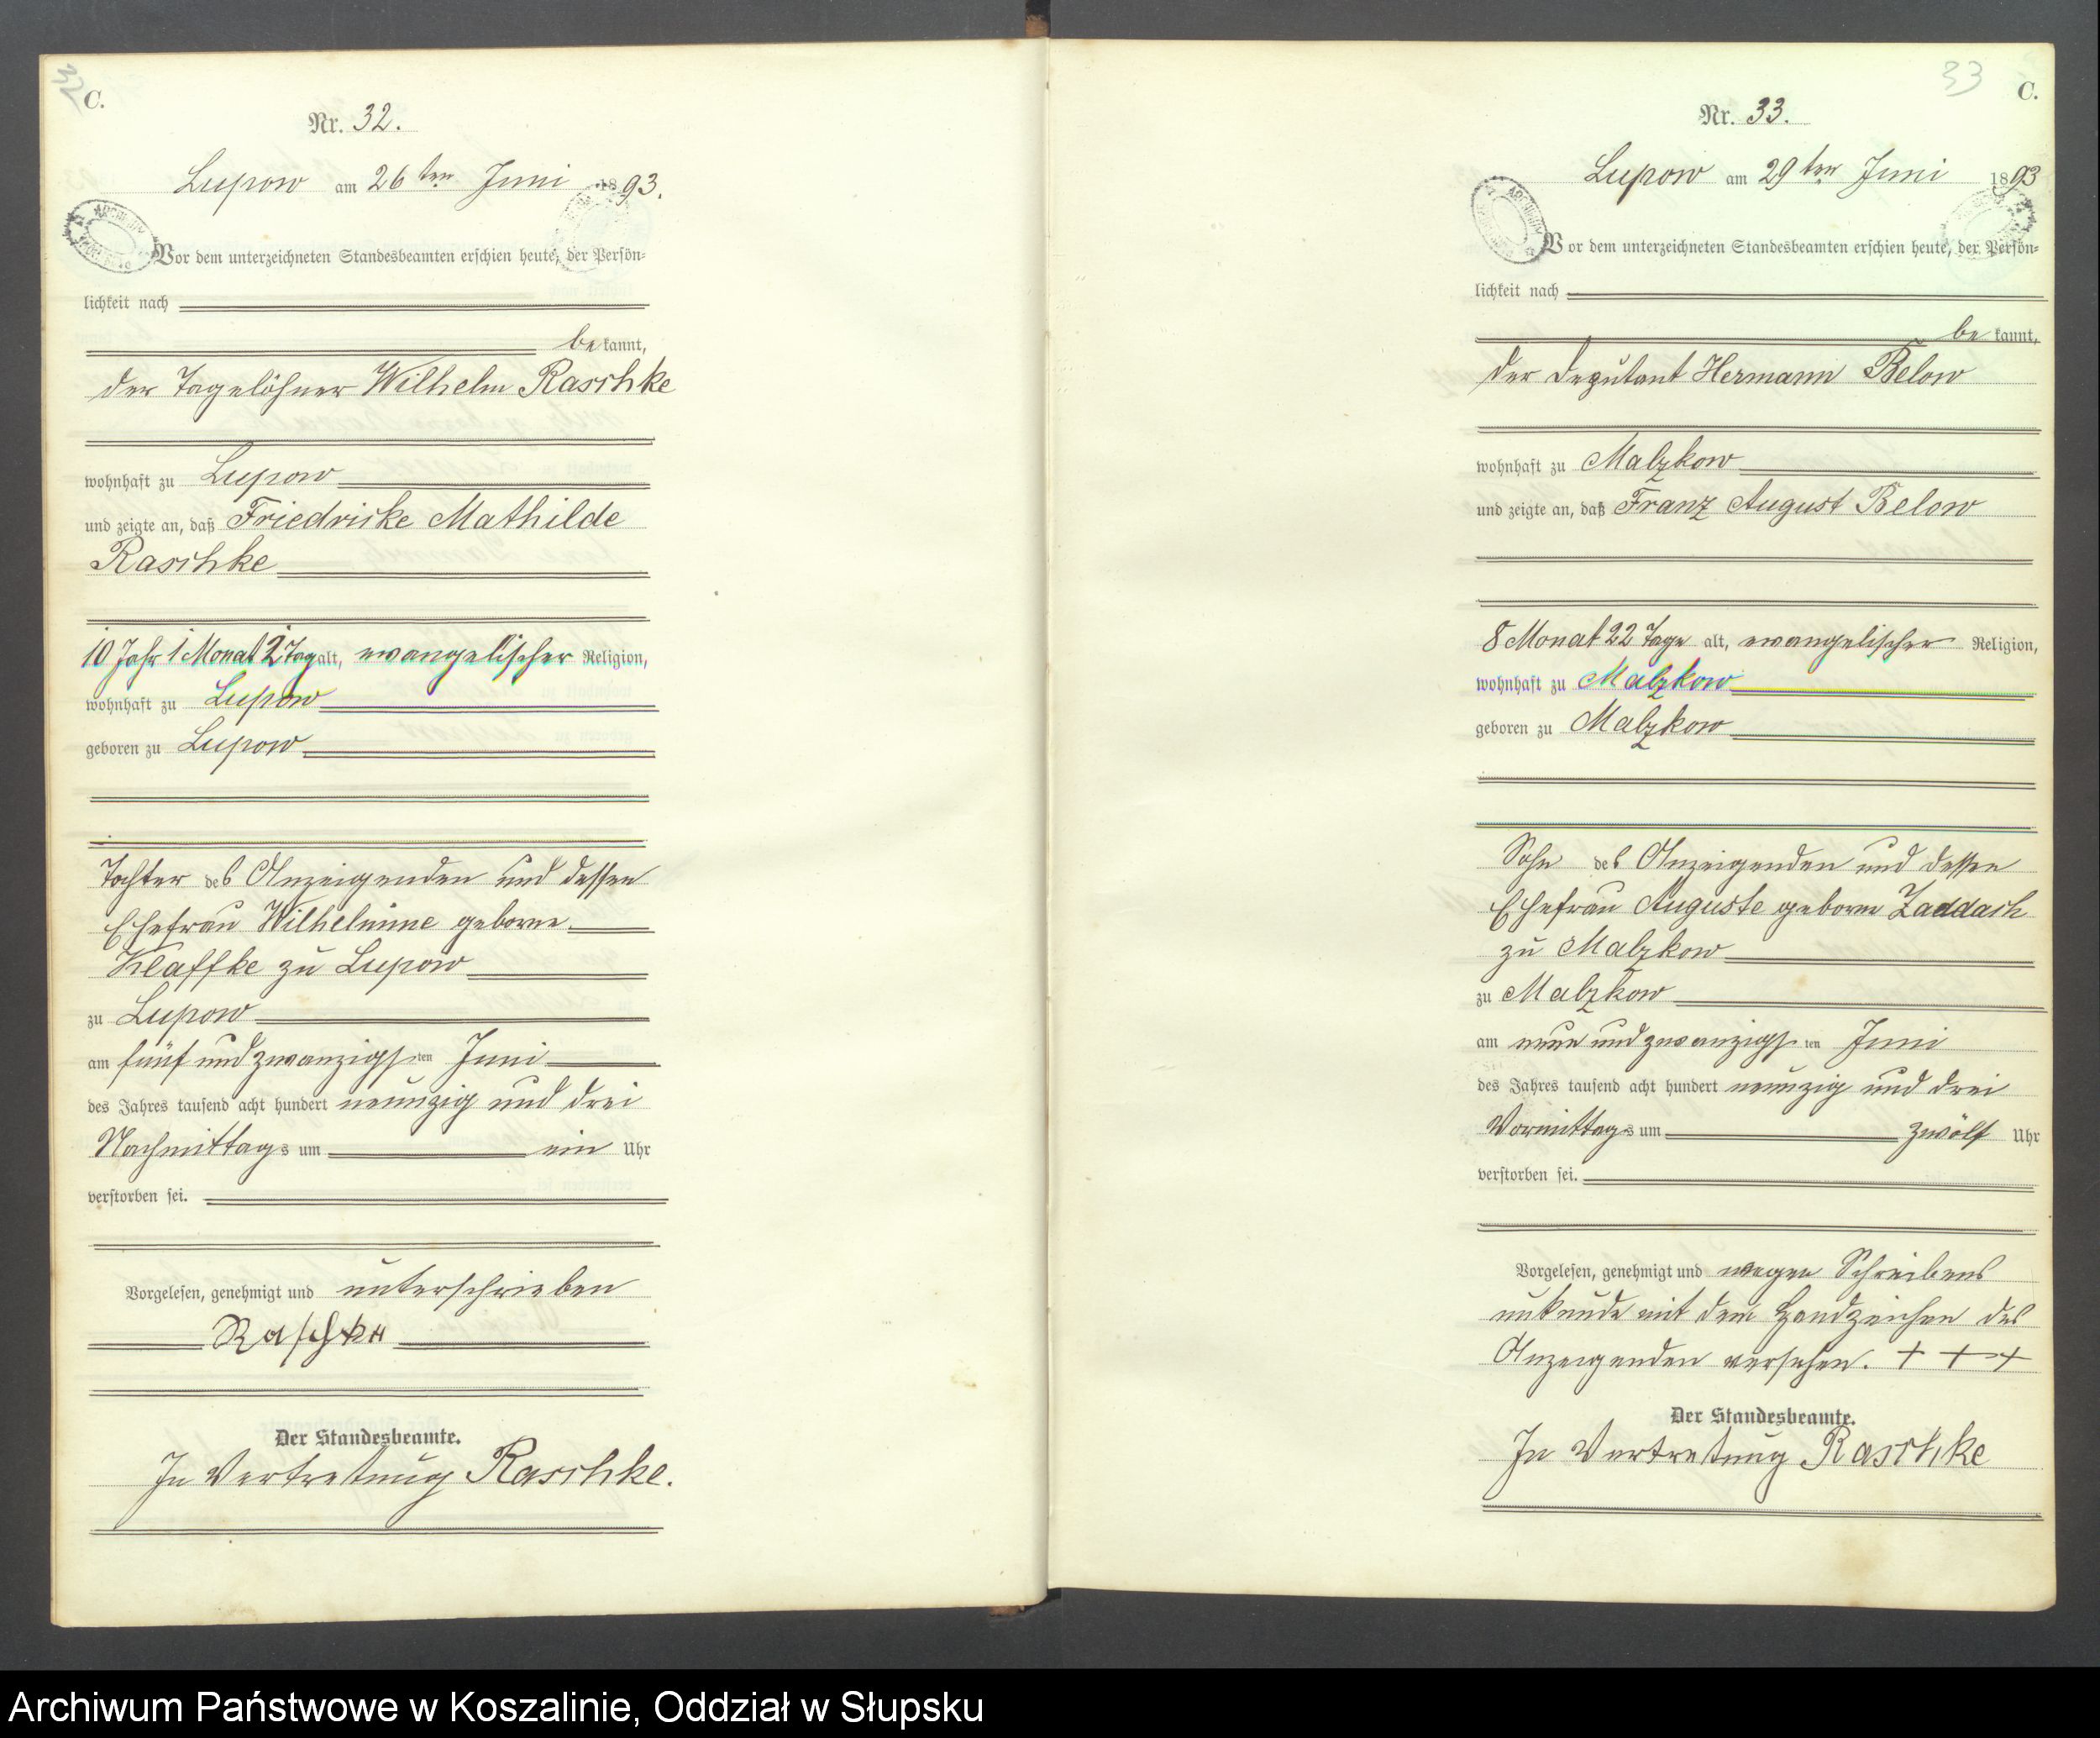 32
C.
Nr. 32.
Lupow am 26ten Juni 1893.
Vor dem unterzeichneten Standesbeamten erschien heute, der Persön-
lichkeit nach
bekannt,
der Tagelöhner Wilhelm Raschke
wohnhaft zu Lupow
und zeigte an, daß Friedricke Mathilde
Raschke
10 Jahr 1 Monat 2 Tag alt, evangelischer Religion,
wohnhaft zu Lupow
geboren zu Lupow
Tochter des Anzeigenden und dessen
Ehefrau Wilhelmine geborne
Klaffke zu Lupow
zu Lupow
am fünf und zwanzigsten Juni
des Jahres tausend acht hundert neunzig und drei
Nachmittags um ein Uhr
verstorben sei.
Vorgelesen, genehmigt und unterschrieben
Raschke
Der Standesbeamte.
In Vertretung Raschke.
33
C.
Nr. 33.
Lupow am 29ten Juni 1893
Vor dem unterzeichneten Standesbeamten erschien heute, der Persön-
lichkeit nach
bekannt,
der Deputant Hermann Below
wohnhaft zu Malzkow
und zeigte an, daß Franz August Below
8 Monat 22 Tage alt, evangelischer Religion,
wohnhaft zu Malzkow
geboren zu Malzkow
Sohn des Anzeigenden und dessen
Ehefrau Auguste geborne Zaddach
zu Malzkow
zu Malzkow
am neun und zwanzigsten Juni
des Jahres tausend acht hundert neunzig und drei
Vormittags um zwölf Uhr
verstorben sei.
Vorgelesen, genehmigt und wegen Schreibens
unkunde mit dem Handzeichen des
Anzeigenden versehen. + + +
Der Standesbeamte.
In Vertretung Raschke
Archiwum Państwowe w Koszalinie, Oddział w Słupsku